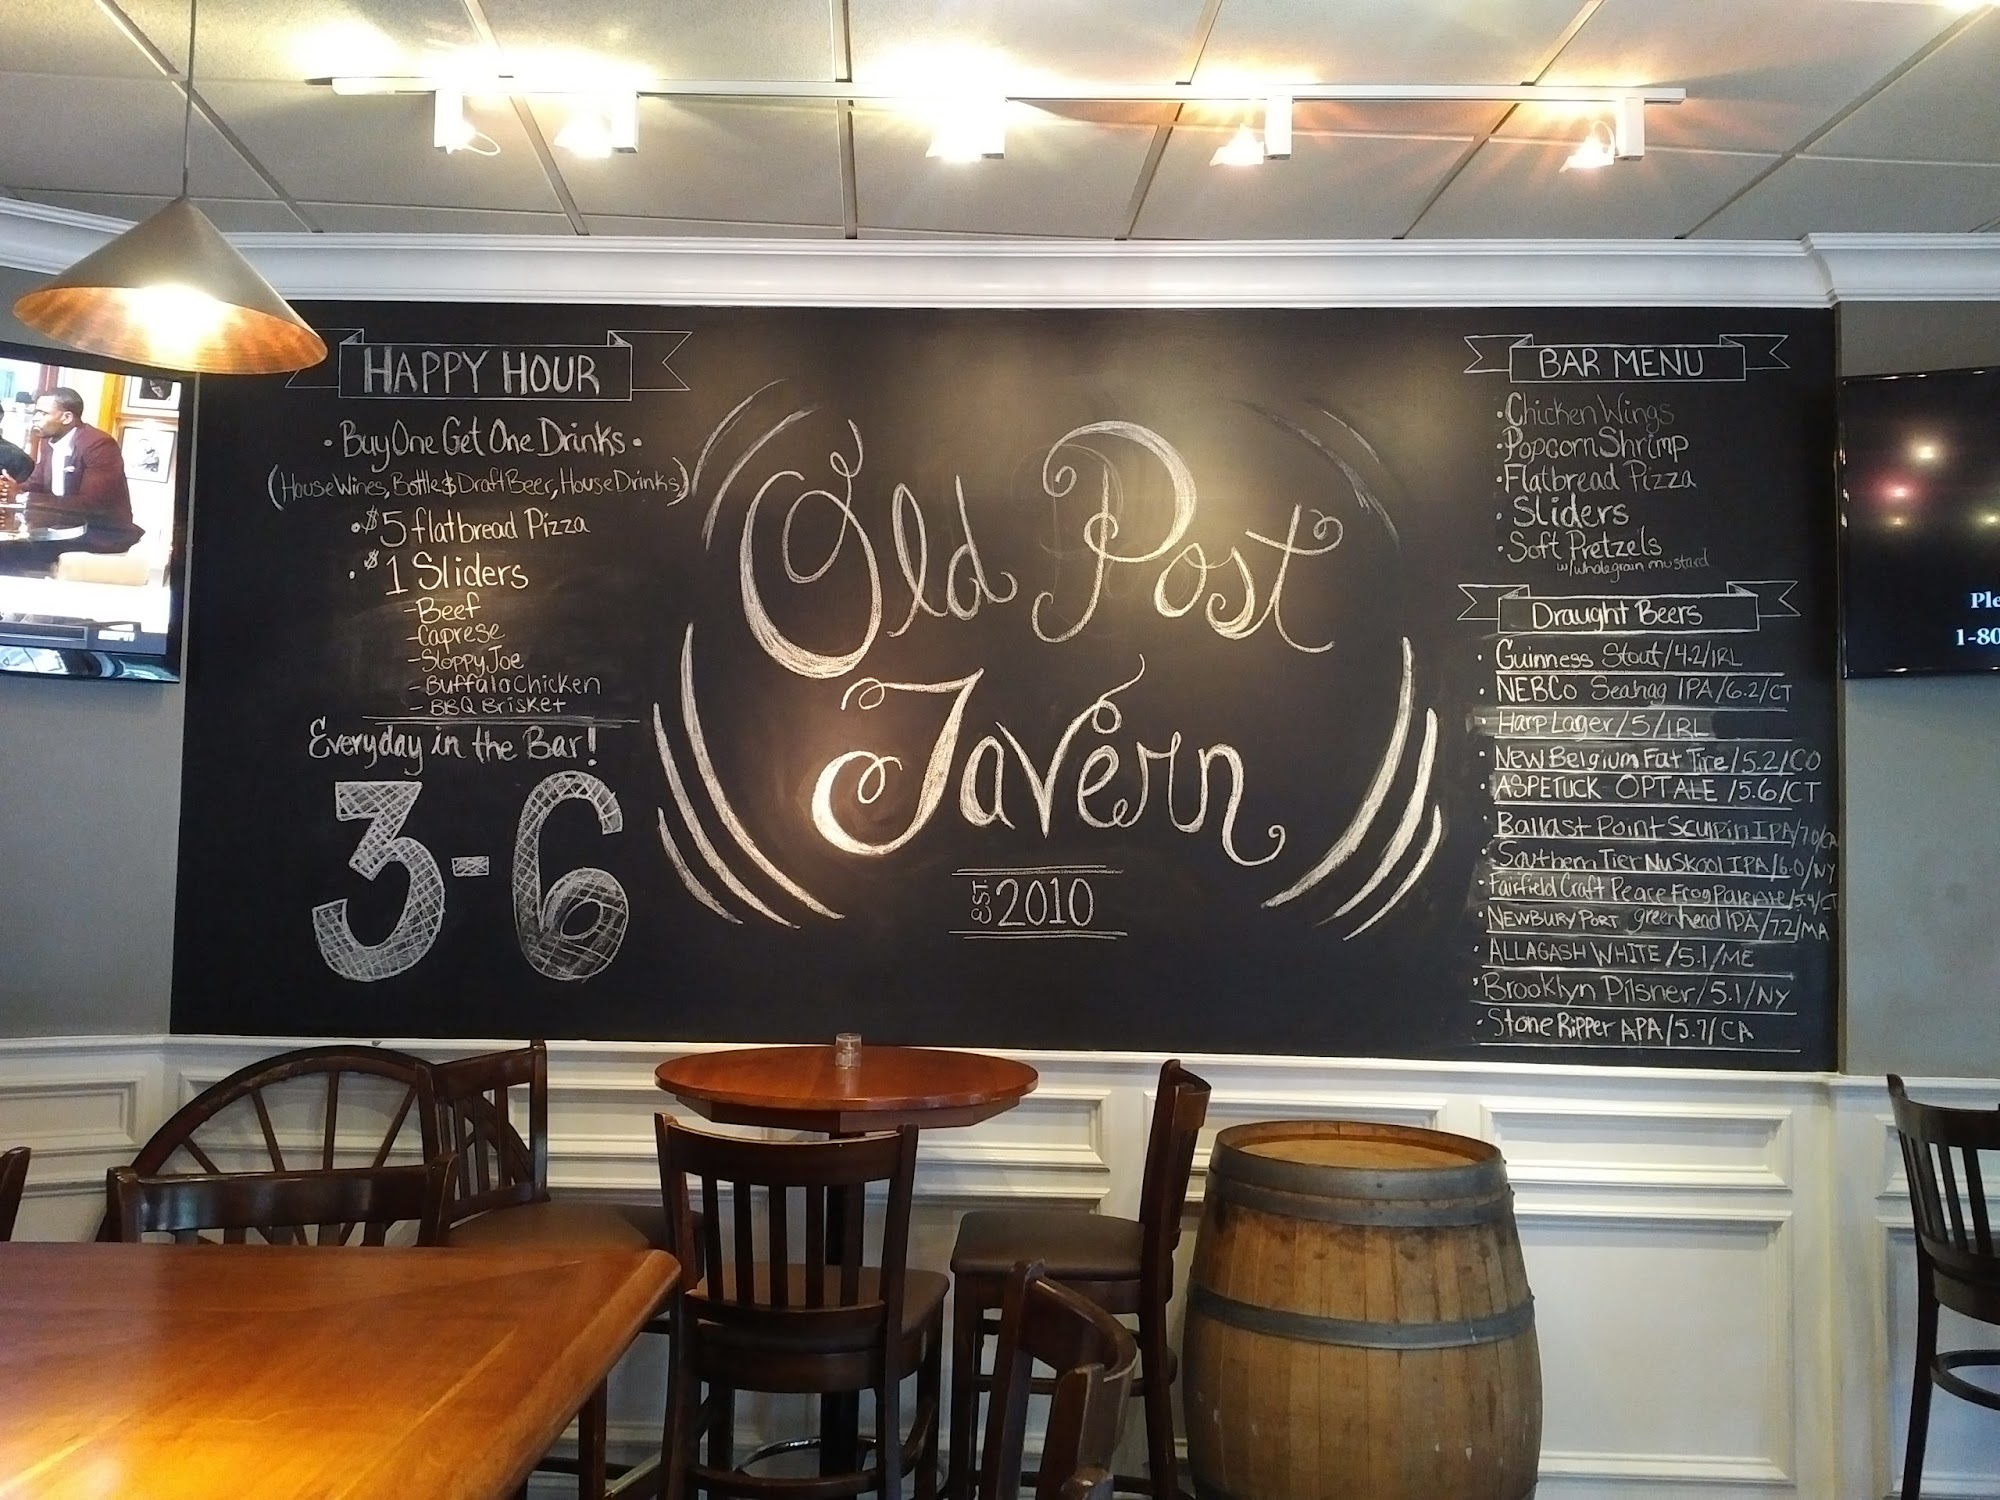 HAPPY HOUR
• Buy One Get One Drinks •
(House Wines, Bottle & Draft Beer, House Drinks)
• $5 flatbread Pizza
• $1 Sliders
- Beef
- Caprese
- Sloppy Joe
- Buffalo Chicken
- BBQ Brisket
Everyday in the Bar!
3-6
Old Post
Tavern
EST. 2010
BAR MENU
• Chicken Wings
• Popcorn Shrimp
• Flatbread Pizza
• Sliders
• Soft Pretzels
w/ whole grain mustard
Draught Beers
• Guinness Stout/4.2/IRL
• NEBCo Seahag IPA/6.2/CT
• Harp Lager/5/IRL
• New Belgium Fat Tire/5.2/CO
• ASPETUCK OPT ALE/5.6/CT
• Ballast Point Sculpin IPA/7.0/CA
• Southern Tier NuSkool IPA/6.0/NY
• Fairfield Craft Peace Frog Pale Ale/5.4/CT
• NEWBURYPORT greenhead IPA/7.2/MA
• ALLAGASH WHITE/5.1/ME
• Brooklyn Pilsner/5.1/NY
• Stone Ripper APA/5.7/CA
Ple
1-80
ESPN